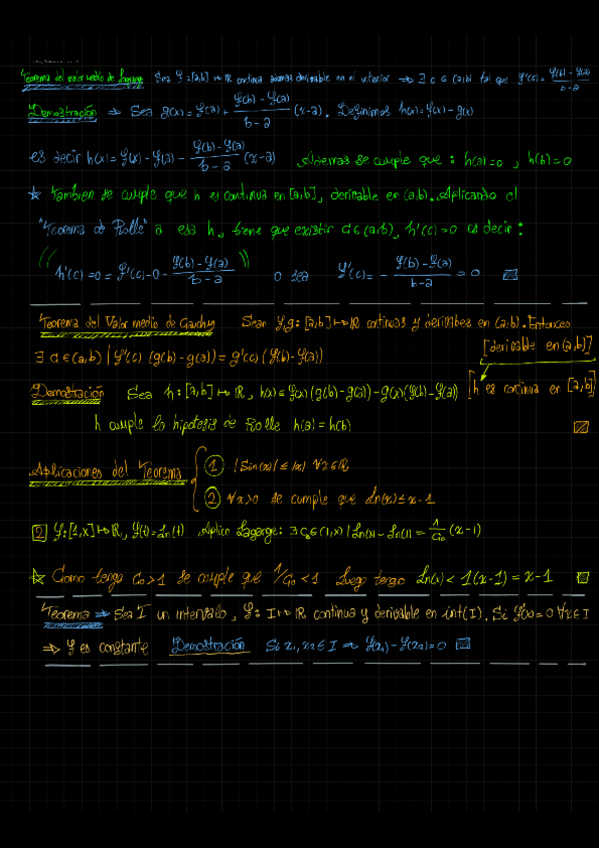 Teorema del valor medio de Lagrange Sea f:[a,b] ↦ ℝ continua además derivable en el interior ⇒ ∃ c ∈ (a,b) tal que f'(c) = (f(b) - f(a))/(b-a)
Demostración ⇒ Sea g(x) = f(a) + (f(b) - f(a))/(b-a) (x-a). Definimos h(x) = f(x) - g(x)
es decir h(x) = f(x) - f(a) - (f(b) - f(a))/(b-a) (x-a) Ademas se cumple que : h(a)=0 , h(b)=0
☆ También se cumple que h es continua en [a,b], derivable en (a,b). Aplicando el
"Teorema de Rolle" a esa h, tiene que existir c ∈ (a,b), h'(c)=0 es decir :
(( h'(c) = 0 = f'(c) - 0 - (f(b) - f(a))/(b-a) )) o sea f'(c) = - (f(b) - f(a))/(b-a) = 0
Teorema del Valor medio de Cauchy Sean f,g: [a,b] ↦ ℝ continuas y derivables en (a,b). Entonces
∃ c ∈ (a,b) | f'(c) (g(b) - g(a)) = g'(c) (f(b) - f(a))
[derivable en (a,b)]
Demostación Sea h: [a,b] ↦ ℝ, h(x) = f(x)(g(b) - g(a)) - g(x)(f(b) - f(a))
[h es continua en [a,b]]
h cumple la hipotesis de Rolle h(a) = h(b)
Aplicaciones del Teorema
① |Sin(x)| ≤ |x| ∀x∈ℝ
② ∀x>0 se cumple que Ln(x) ≤ x-1
[2] f:[1,x] ↦ ℝ, f(t) = Ln(t) Aplico Lagarge: ∃ c₀∈(1,x) | Ln(x) - Ln(1) = 1/c₀ (x-1)
☆ Como tengo c₀>1 se cumple que 1/c₀ < 1 Luego tengo Ln(x) < 1(x-1) = x-1
Teorema ⇒ Sea I un intervalo, f: I ↦ ℝ continua y derivable en int(I). Si f'(x)=0 ∀x∈I
⇒ f es constante Demostración Si x₁, x₂ ∈ I ⇒ f(x₁) - f(x₂) = 0